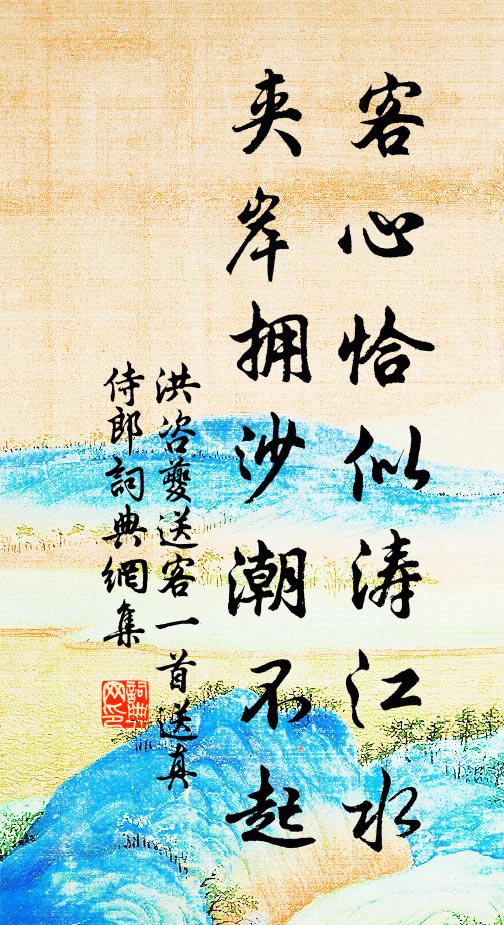 客心恰似涛江水
夹岸拥沙潮不起
洪咨夔送客一首送真
侍郎詞典網集
詞典
网印